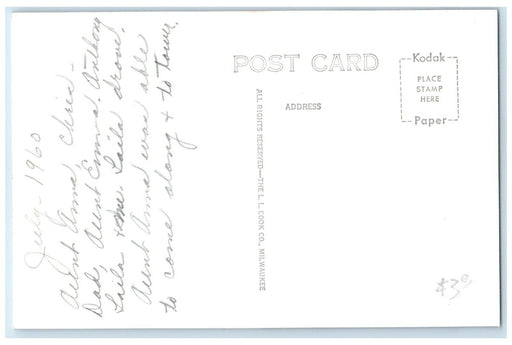 July - 1960
Aunt Anna, Chris -
Dad, Aunt Emma, Anthony
Laila + me. Laila drove.
Aunt Anna was able
to come along + to town.
POST CARD
ADDRESS
Kodak
PLACE
STAMP
HERE
Paper
ALL RIGHTS RESERVED—THE L. L. COOK CO., MILWAUKEE